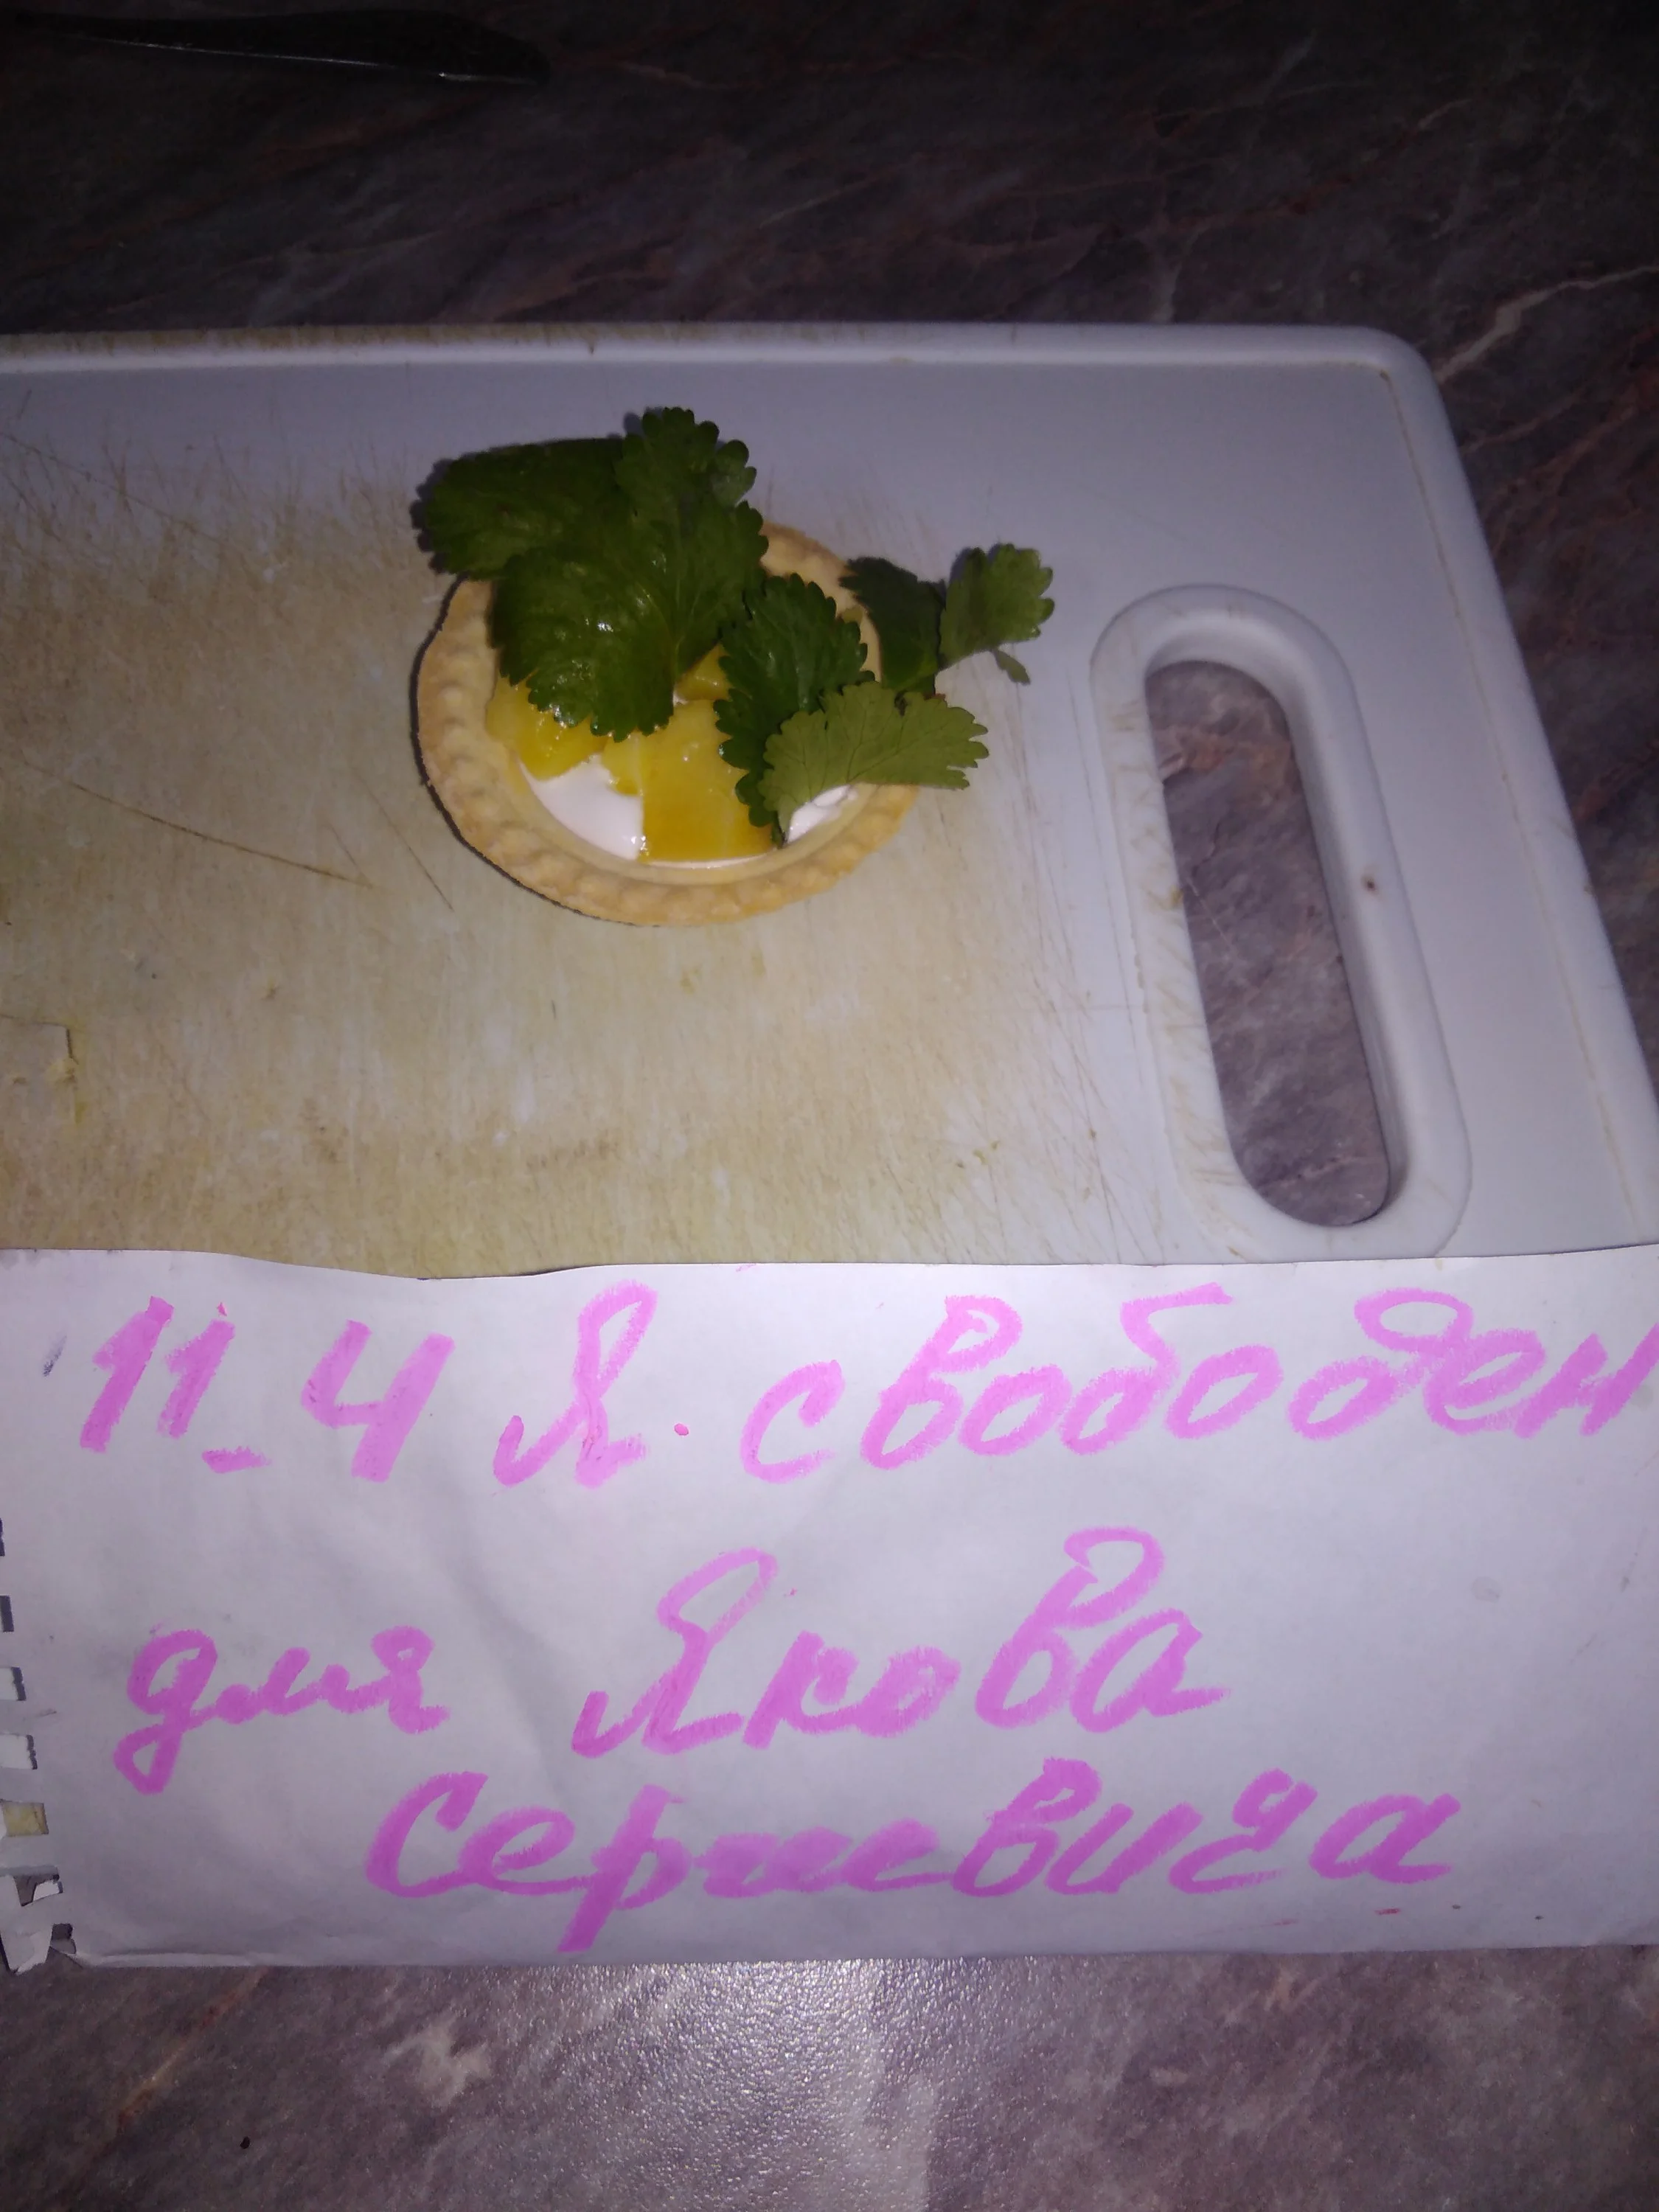 11_4 Я. свободен
для Якова
Сергиевича